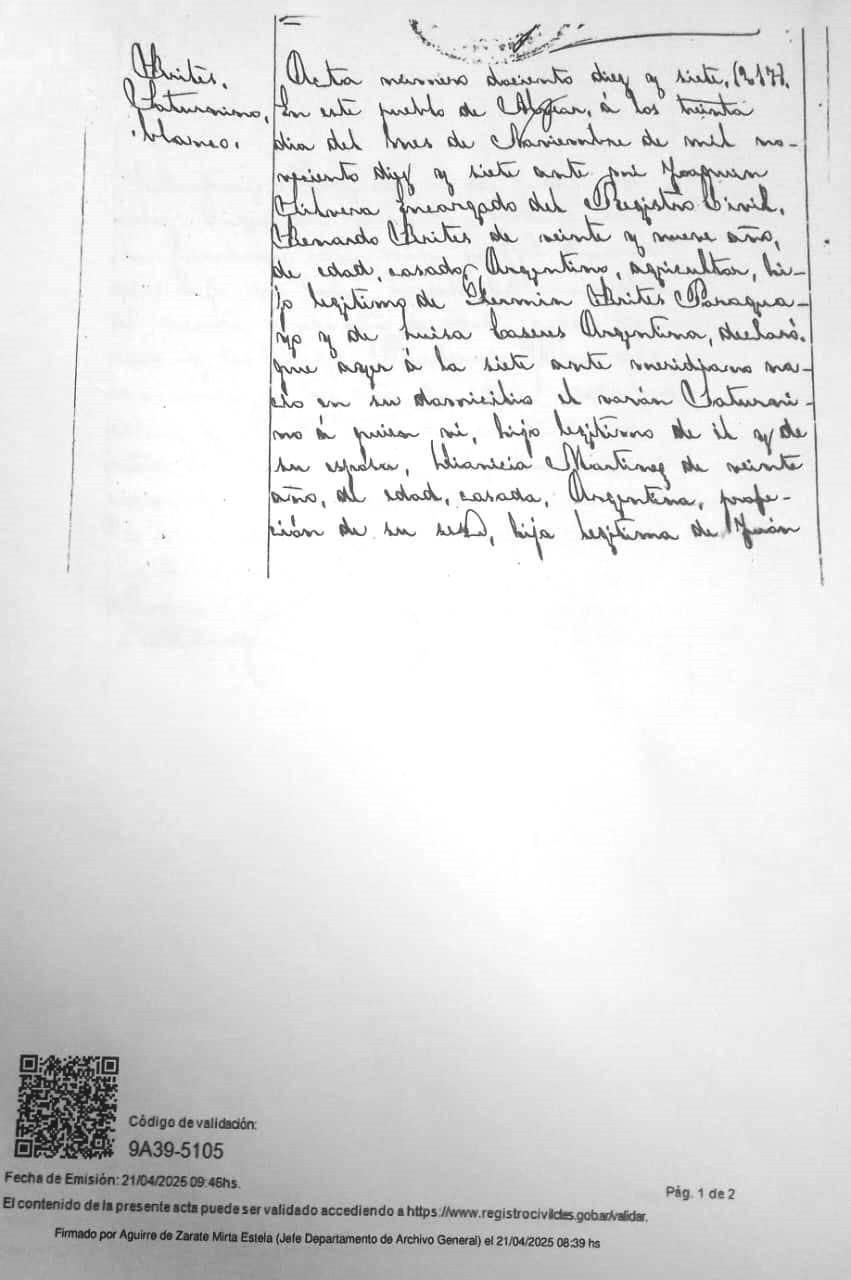 Brites.
Saturnino,
blanco.
Acta numero dociento diez y siete, (217).
En este pueblo de Alvear, á los treinta
dia del mes de Noviembre de mil no-
veciento diez y siete ante mi Joaquin
encargado del Registro Civil,
Bernardo Brites de veinte y nueve año,
de edad, casado, Argentino, agricultor, hi-
jo legitimo de Fermin Brites Paragua-
yo y de Luisa Caseres Argentina, declaró.
que ayer á la siete ante meridiano na-
ció en su domicilio el varón Saturni-
no á quien vi, hijo legitimo de él y de
su esposa, Martinez de veinte
año, de edad, casada, Argentina, profe-
ción de su sexo, hija legitima de Juán
Código de validación:
9A39-5105
Fecha de Emisión: 21/04/2025 09:46hs.
Pág. 1 de 2
El contenido de la presente acta puede ser validado accediendo a https://www.registrocivilctes.gob.ar/validar.
Firmado por Aguirre de Zarate Mirta Estela (Jefe Departamento de Archivo General) el 21/04/2025 08:39 hs